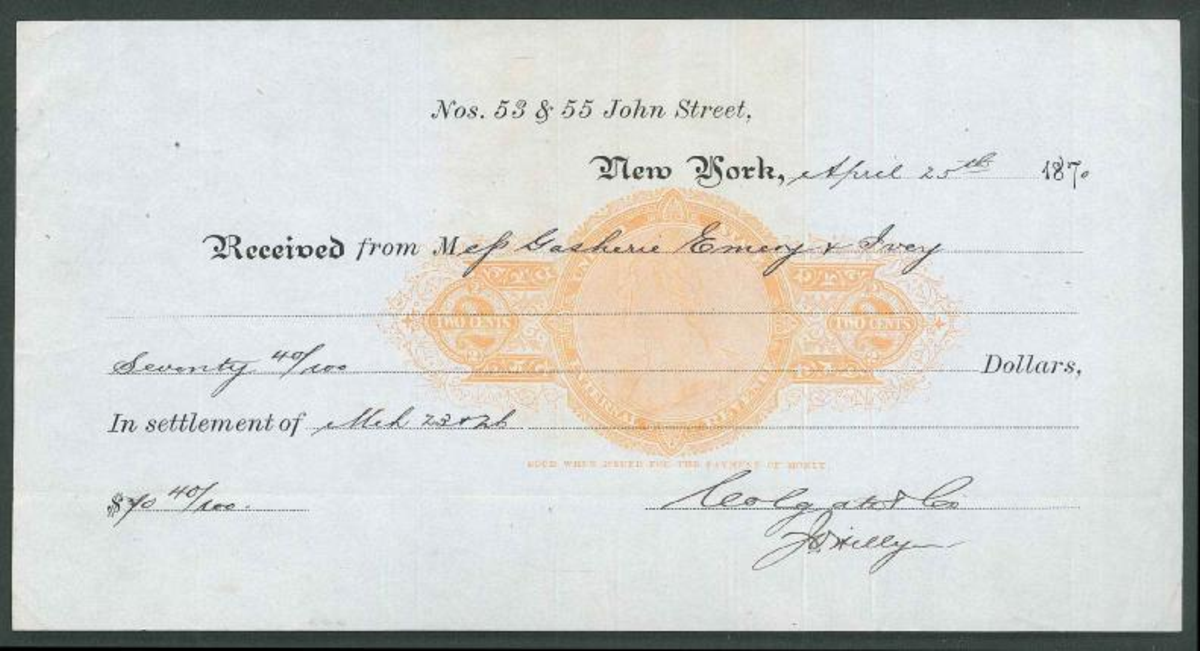 Nos. 53 & 55 John Street,
New York, April 25th 1870
Received from Mess Gasherie Emery & Ivey
TWO CENTS TWO CENTS
Seventy 40/100 Dollars,
In settlement of Mch 23 & 26
GOOD WHEN ISSUED FOR THE PAYMENT OF MONEY
$70 40/100.
Colgate & Co